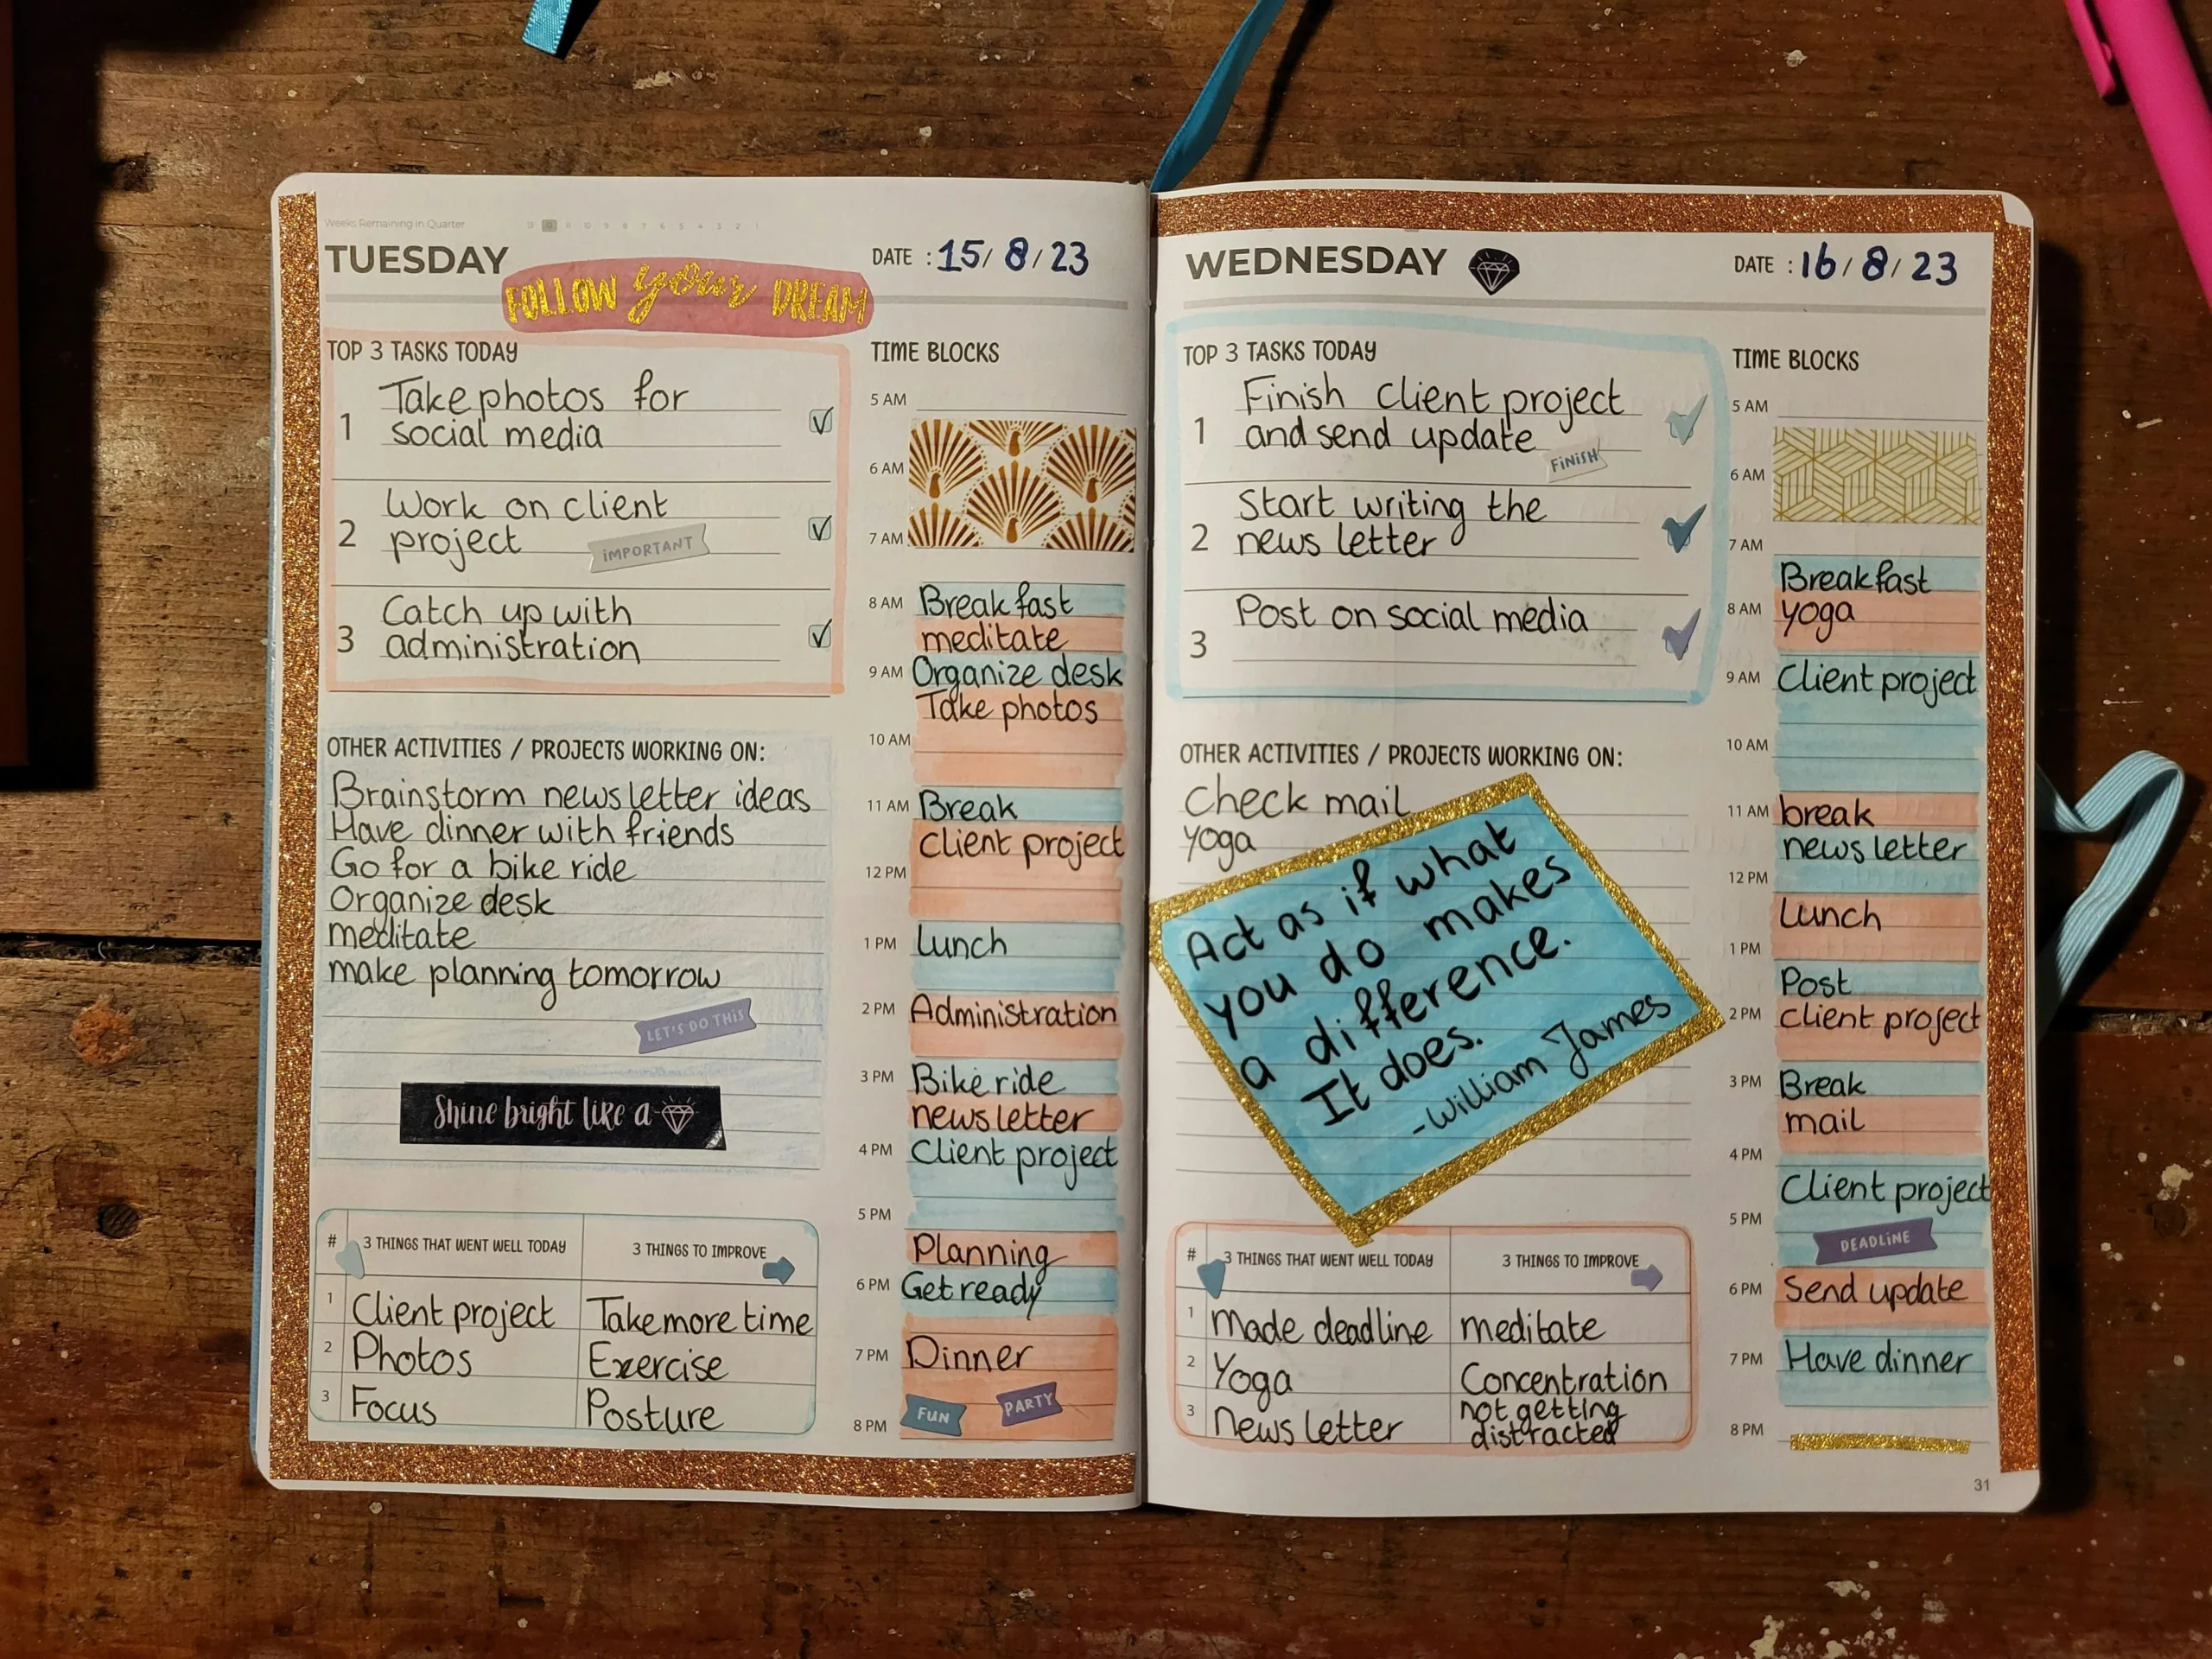 Weeks Remaining in Quarter 13 12 11 10 9 8 7 6 5 4 3 2 1
TUESDAY
FOLLOW your DREAM
DATE : 15/ 8/ 23
TOP 3 TASKS TODAY
1 Take photos for
social media
2 Work on client
project
IMPORTANT
3 Catch up with
administration
OTHER ACTIVITIES / PROJECTS WORKING ON:
Brainstorm newsletter ideas
Have dinner with friends
Go for a bike ride
Organize desk
meditate
make planning tomorrow
LET'S DO THiS
Shine bright like a
# 3 THINGS THAT WENT WELL TODAY 3 THINGS TO IMPROVE
1 Client project Take more time
2 Photos Exercise
3 Focus Posture
TIME BLOCKS
5 AM
6 AM
7 AM
8 AM Breakfast
meditate
9 AM Organize desk
Take photos
10 AM
11 AM Break
client project
12 PM
1 PM Lunch
2 PM Administration
3 PM Bike ride
newsletter
4 PM Client project
5 PM
Planning
6 PM Get ready
7 PM Dinner
FUN PARTY
8 PM
WEDNESDAY
DATE : 16/ 8/ 23
TOP 3 TASKS TODAY
1 Finish client project
and send update
FiNiSH
2 Start writing the
news letter
3 Post on social media
OTHER ACTIVITIES / PROJECTS WORKING ON:
Check mail
yoga
Act as if what
you do makes
a difference.
It does.
-William James
# 3 THINGS THAT WENT WELL TODAY 3 THINGS TO IMPROVE
1 Made deadline meditate
2 Yoga Concentration
3 News letter not getting
distracted
TIME BLOCKS
5 AM
6 AM
7 AM
Breakfast
8 AM yoga
9 AM Client project
10 AM
11 AM break
news letter
12 PM
Lunch
1 PM
Post
2 PM client project
3 PM Break
mail
4 PM
Client project
5 PM
DEADLiNE
6 PM Send update
7 PM Have dinner
8 PM
31